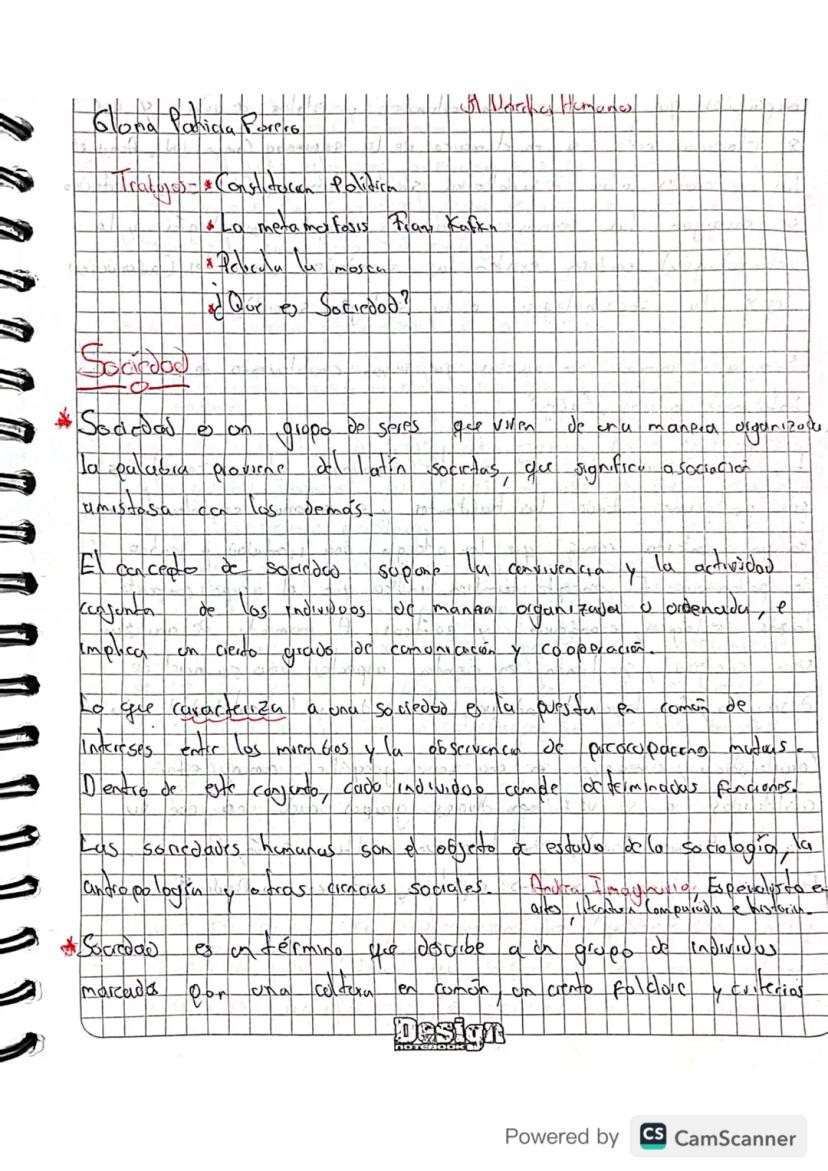 Derechos Humanos
Gloria Patricia
Trabajos= * Constitucion Politica
* La metamorfosis Franz Kafka
* Pelicula la mosca
* ¿Que es Sociedad?
Sociedad
* Sociedad es un grupo de seres que viven de una manera organizada
la palabra proviene del latín societas, que significa asociación
amistosa con los demás.
El concepto de sociedad supone la convivencia y la actividad
conjunta de los individuos de manera organizada u ordenada, e
implica un cierto grado de comunicación y cooperación.
Lo que caracteriza a una sociedad es la puesta en común de
intereses entre los miembros y la observancia de preocupaciones mutuas.
Dentro de este conjunto, cada individuo cumple determinadas funciones.
Las sociedades humanas son el objeto de estudio de la sociología, la
antropología y otras ciencias sociales. Andrea Imaginario, Especialista en
artes, literatura Comparada e historia.
* Sociedad es un término que describe a un grupo de individuos
marcados por una cultura en común, un cierto folclore y criterios
Design
NOTEBOOK
Powered by CS CamScanner